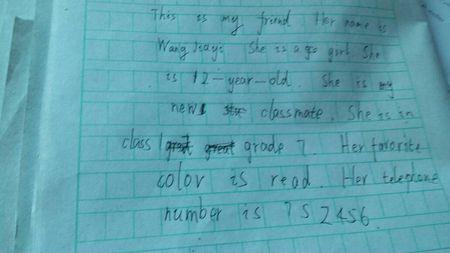 This is my friend. Her name is
Wang She is a girl. She
is 12-year-old. She is my
new classmate. She is in
class 1 grade 7. Her favorite
color is read. Her telephone
number is 752456.